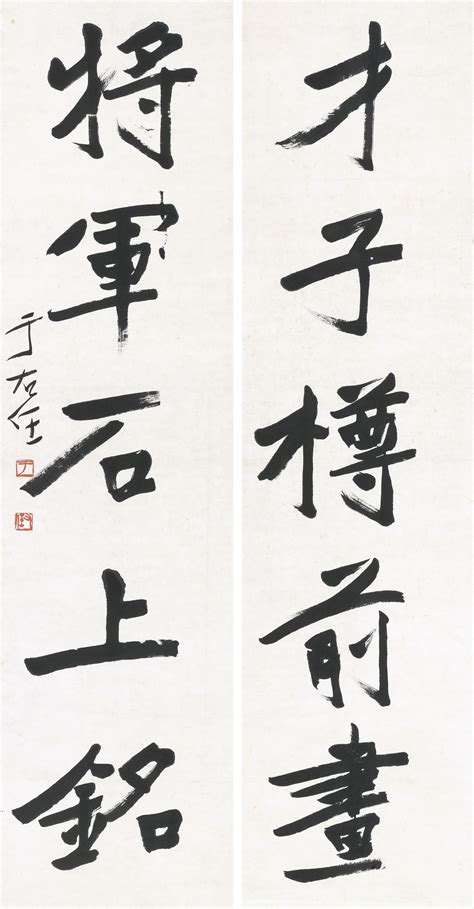 才子樽前畫
將軍石上銘
于右任